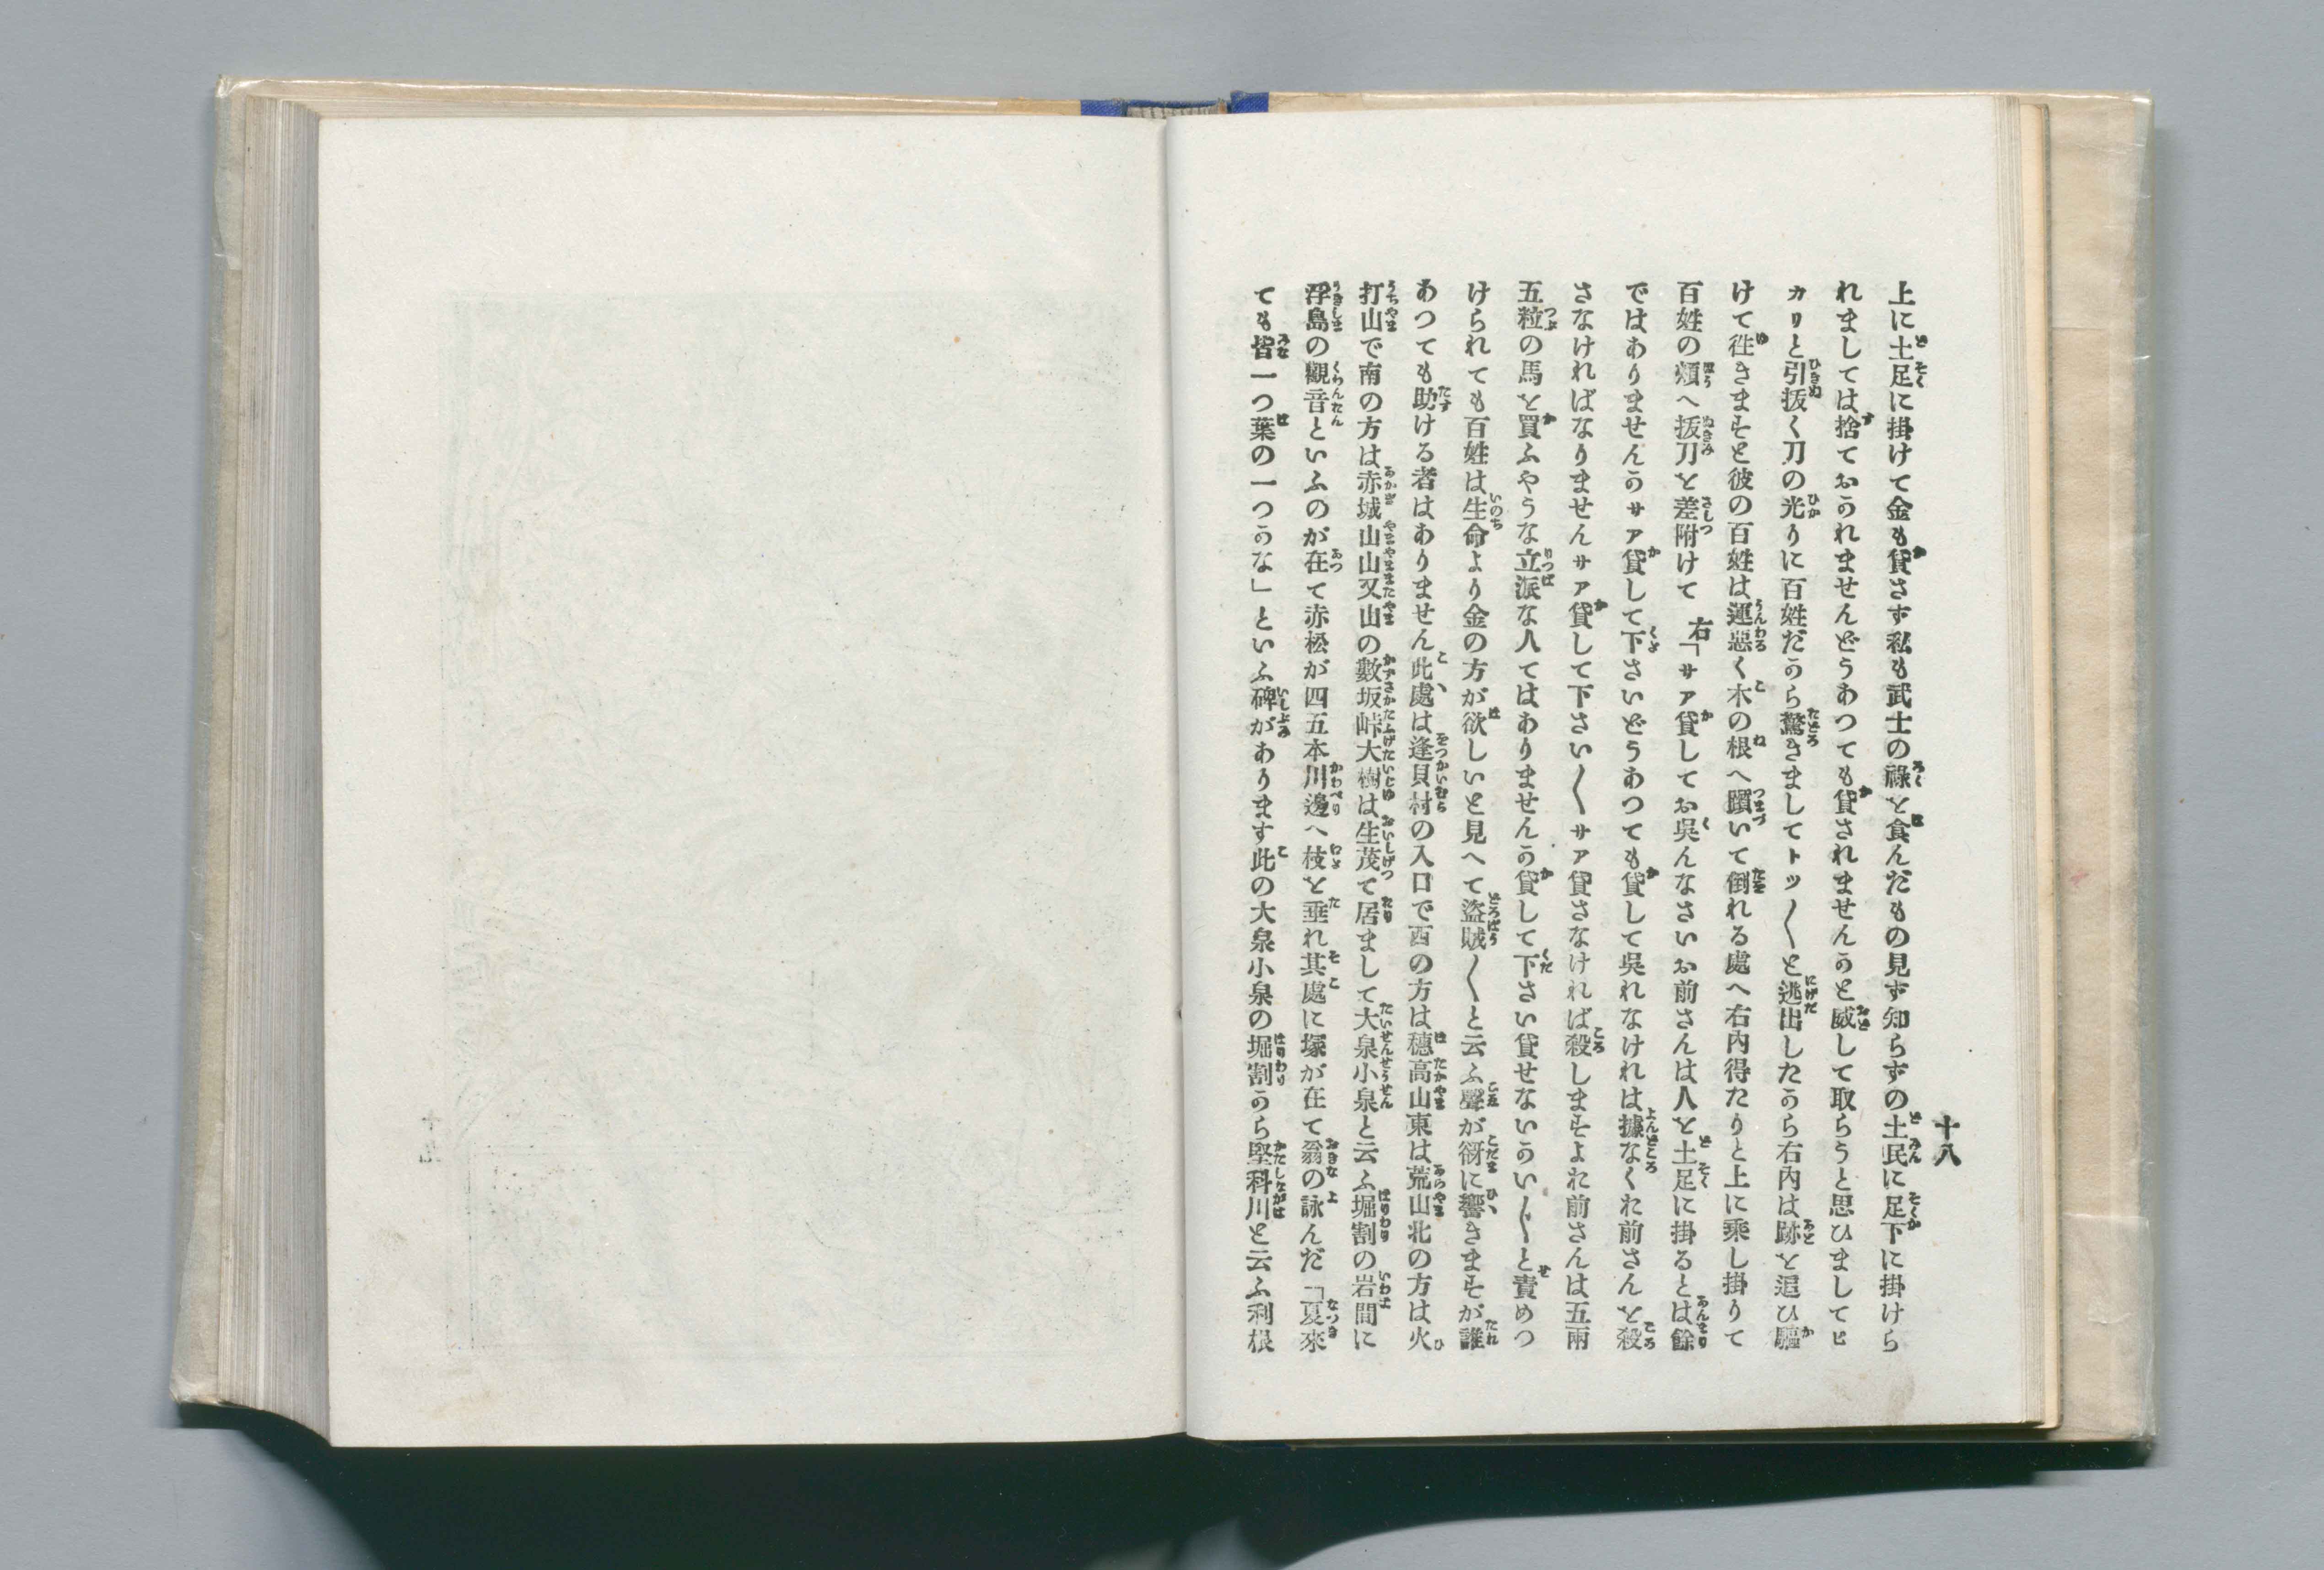 十八
上に土足に掛けて金も貸さず私も武士の祿を食んだもの見ず知らずの土民に足下に掛けら
れましては捨ておかれませんどうあつても貸されませんかと威して取らうと思ひましてヒ
カリと引拔く刀の光りに百姓だから驚きましてトツ〳〵と逃出したから右内は跡を追ひ驅
けて徃きますと彼の百姓は運惡く木の根へ躓いて倒れる處へ右内得たりと上に乘し掛りて
百姓の頬へ拔刀を差附けて　右「サア貸してお呉んなさいお前さんは人を土足に掛るとは餘
ではありませんかサア貸して下さいどうあつても貸して呉れなけれは據なくお前さんを殺
さなければなりませんサア貸して下さい〳〵サア貸さなければ殺しますよお前さんは五兩
五粒の馬を買ふやうな立派な人てはありませんか貸して下さい貸せないかい〳〵と責めつ
けられても百姓は生命より金の方が欲しいと見へて盜賊〳〵と云ふ聲が谺に響きますが誰
あつても助ける者はありません此處は逢貝村の入口で西の方は穗高山東は荒山北の方は火
打山で南の方は赤城山山又山の數坂峠大樹は生茂て居まして大泉小泉と云ふ堀割の岩間に
浮島の觀音といふのが在て赤松が四五本川邊へ枝を垂れ其處に塚が在て翁の詠んだ「夏來
ても皆一つ葉の一つかな」といふ碑があります此の大泉小泉の堀割から堅科川と云ふ利根